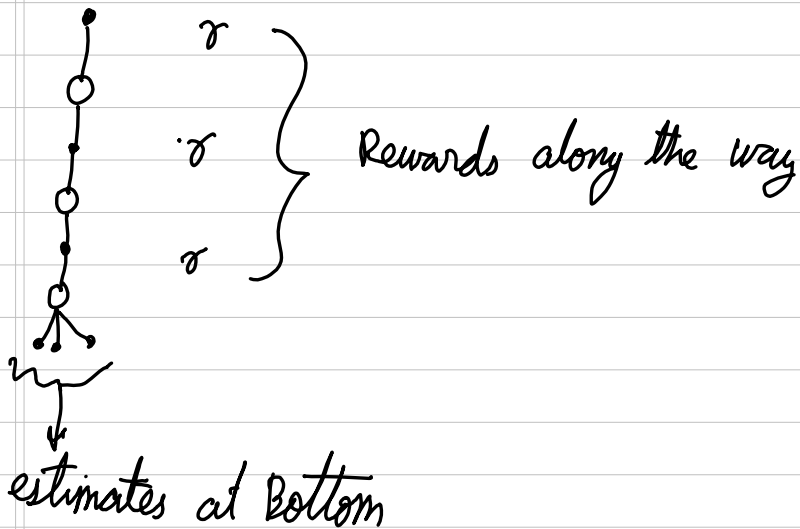 r
r
Rewards along the way
r
estimates at Bottom